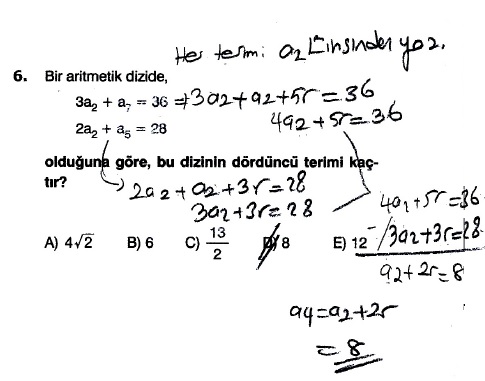 Her terimi a2 cinsinden yaz.
6. Bir aritmetik dizide,
3a₂ + a₇ = 36 ⇒ 3a2 + a2 + 5r = 36
4a2 + 5r = 36
2a₂ + a₅ = 28
olduğuna göre, bu dizinin dördüncü terimi kaç-
tır?
2a2 + a2 + 3r = 28
3a2 + 3r = 28
A) 4√2 B) 6 C) 13/2 D) 8 E) 12
4a2 + 5r = 36
- 3a2 + 3r = 28
a2 + 2r = 8
a4 = a2 + 2r
= 8